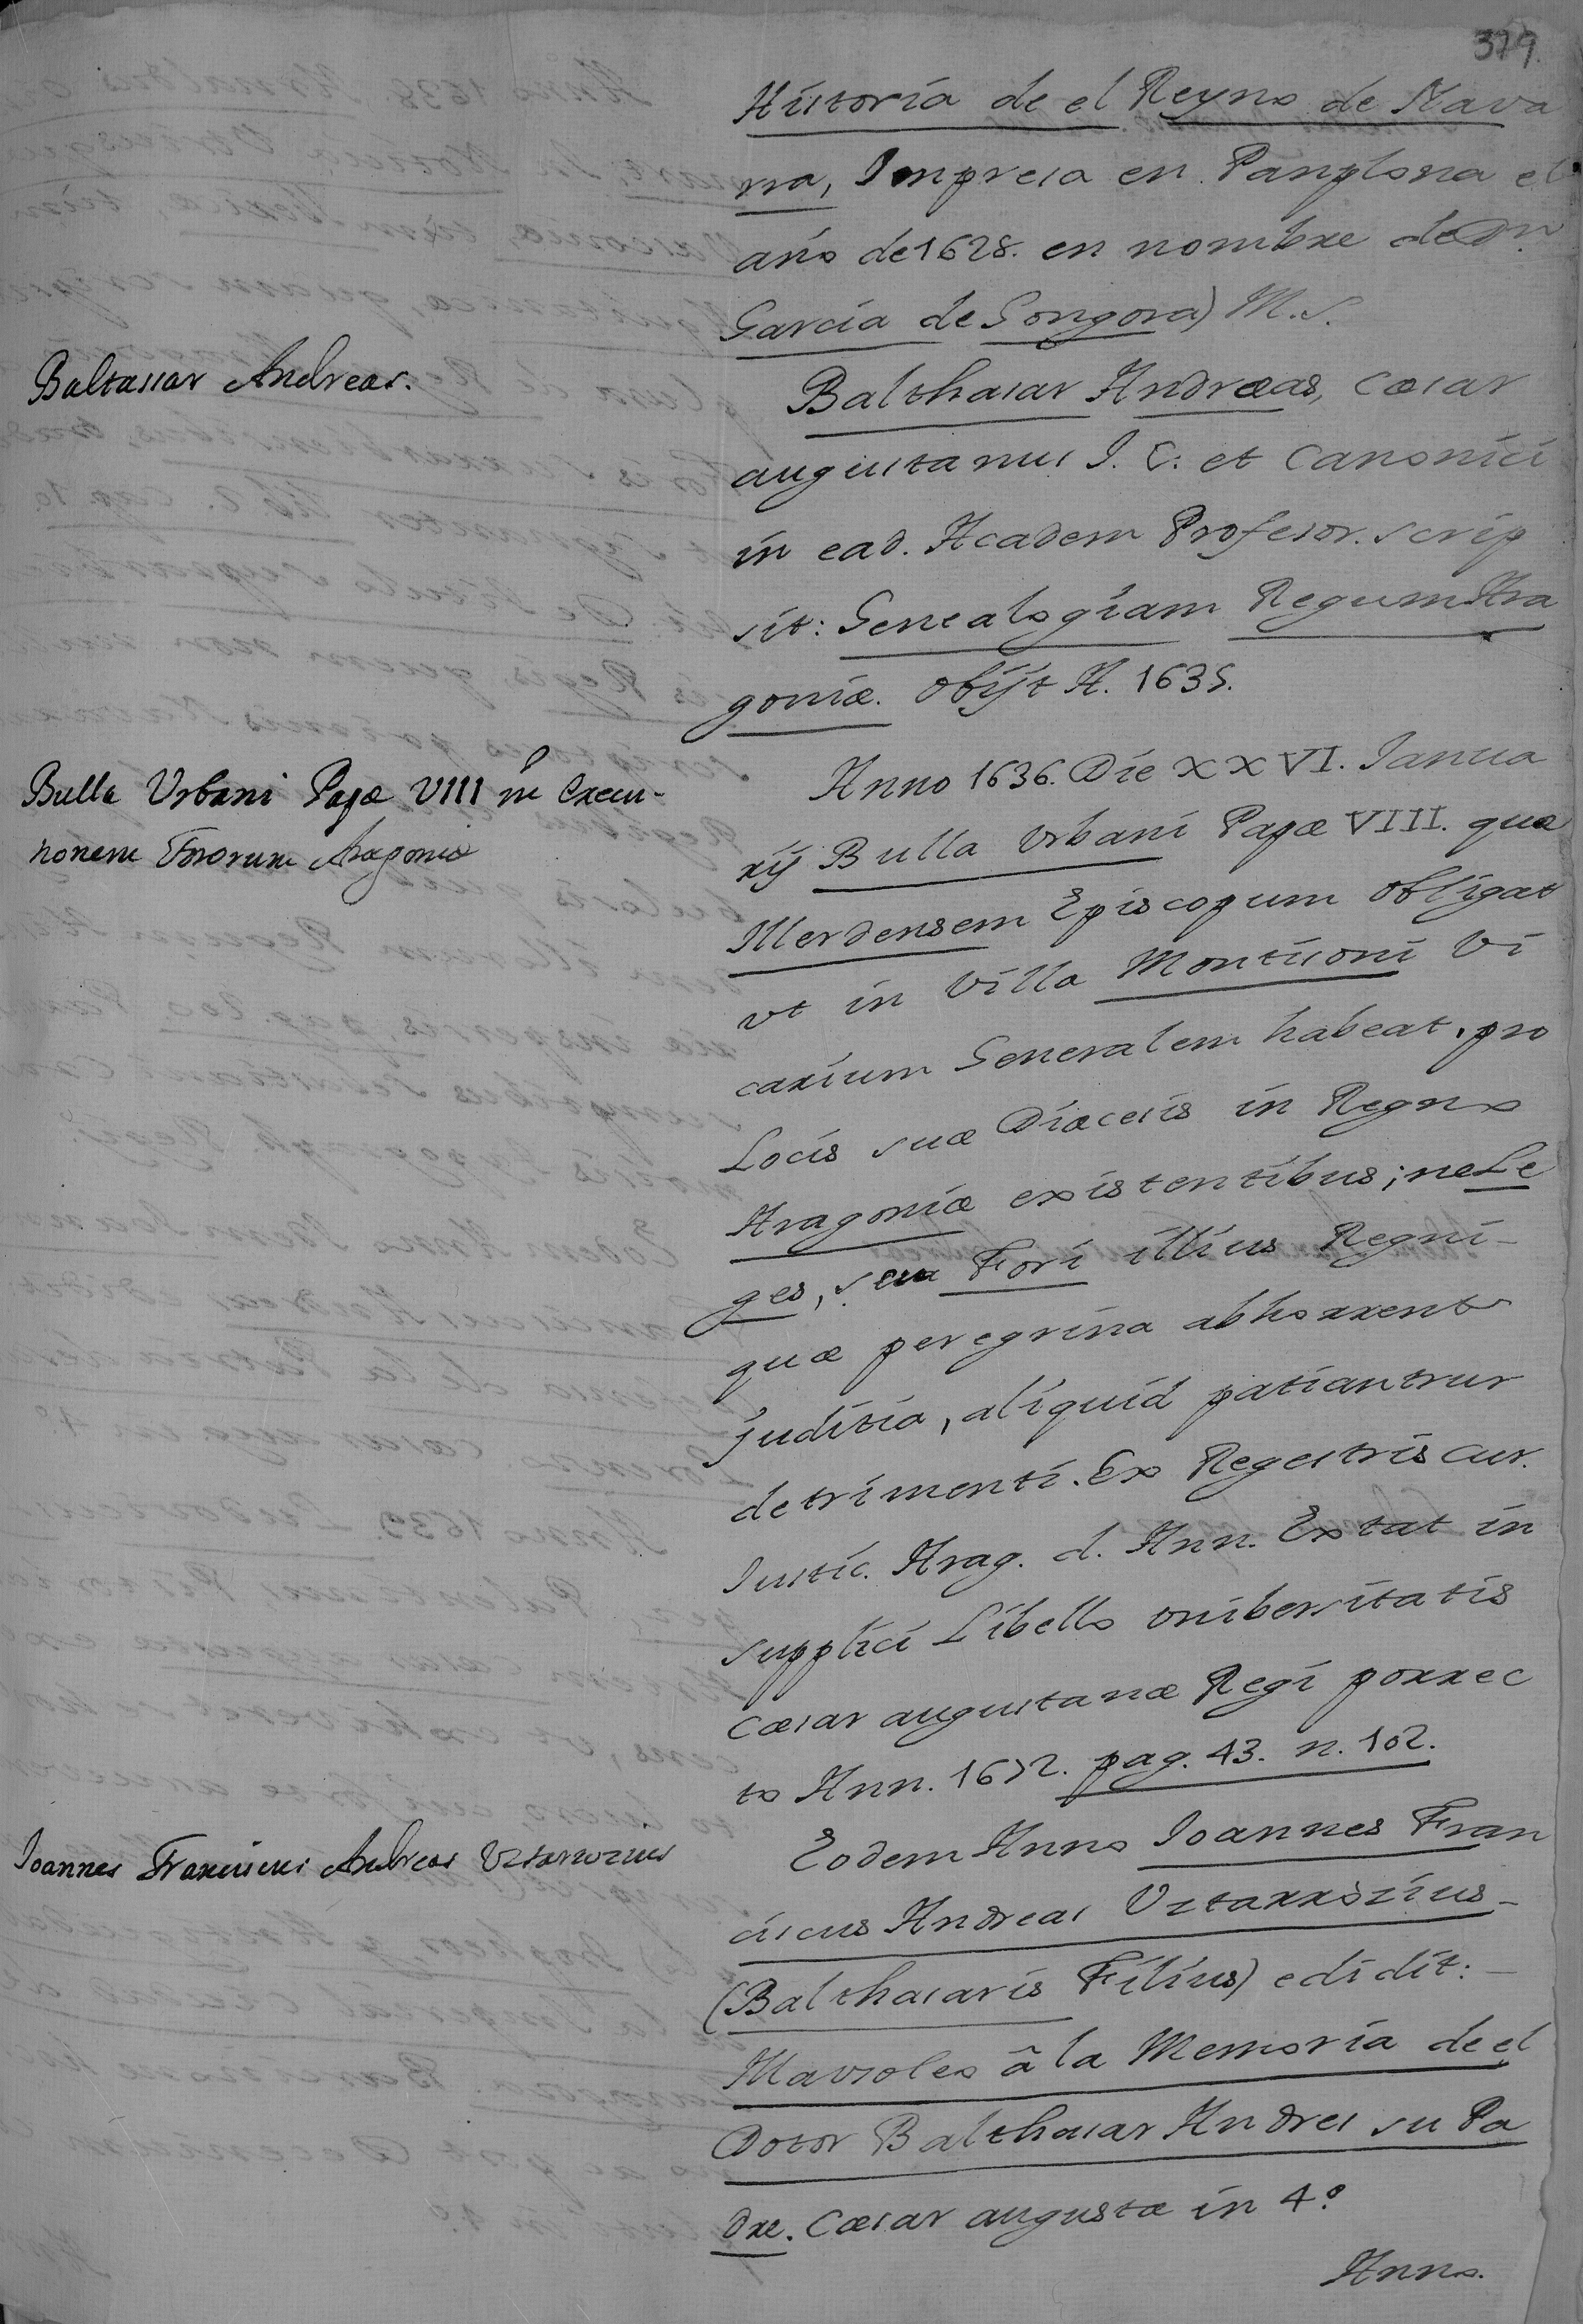 379.
Historia de el Reyno de Nava
rra, Impresa en Panplona el
año de 1628. en nombre de Dn.
Garcia de Gongora) M.S.
Baltassar Andreas.
Balthasar Andræas, Cæsar
augustanus J. C. et Canonici
in ead. Academ Profesor. scrip
sit: Genealogiam Regum Ara
goniæ. obijt A. 1635.
Bulla Vrbani Papæ VIII in
nonem Fororum Aragoniæ
Anno 1636. Die XXVI. Janua
rij Bulla Vrbani Papæ VIII. quæ
Illerdensem Episcopum obligat
vt in Villa Montisoni Vi
carium Generalem habeat, pro
Locis suæ Diæcesis in Regno
Aragoniæ existentibus; ne Le
ges, seu Fori illius Regni-
quæ peregrina abhorrent
juditia, aliquid patiantrur
detrimenti. Ex Regestris cur.
Justic. Arag. d. Ann. Extat in
supplici Libello vnibersitatis
Cæsar augustanæ Regi porrec
to Ann. 1672. pag. 43. n. 102.
Joannes Franciscus Andreas Vztarrozius
Eodem Anno Joannes Fran
ciscus Andreas Vztarrozius-
(Balthasaris Filius) edidit:-
Mavsoleo â la Memoria de el
Dotor Balthasar Andres su Pa
dre. Cæsar augustæ in 4.º
Anno.